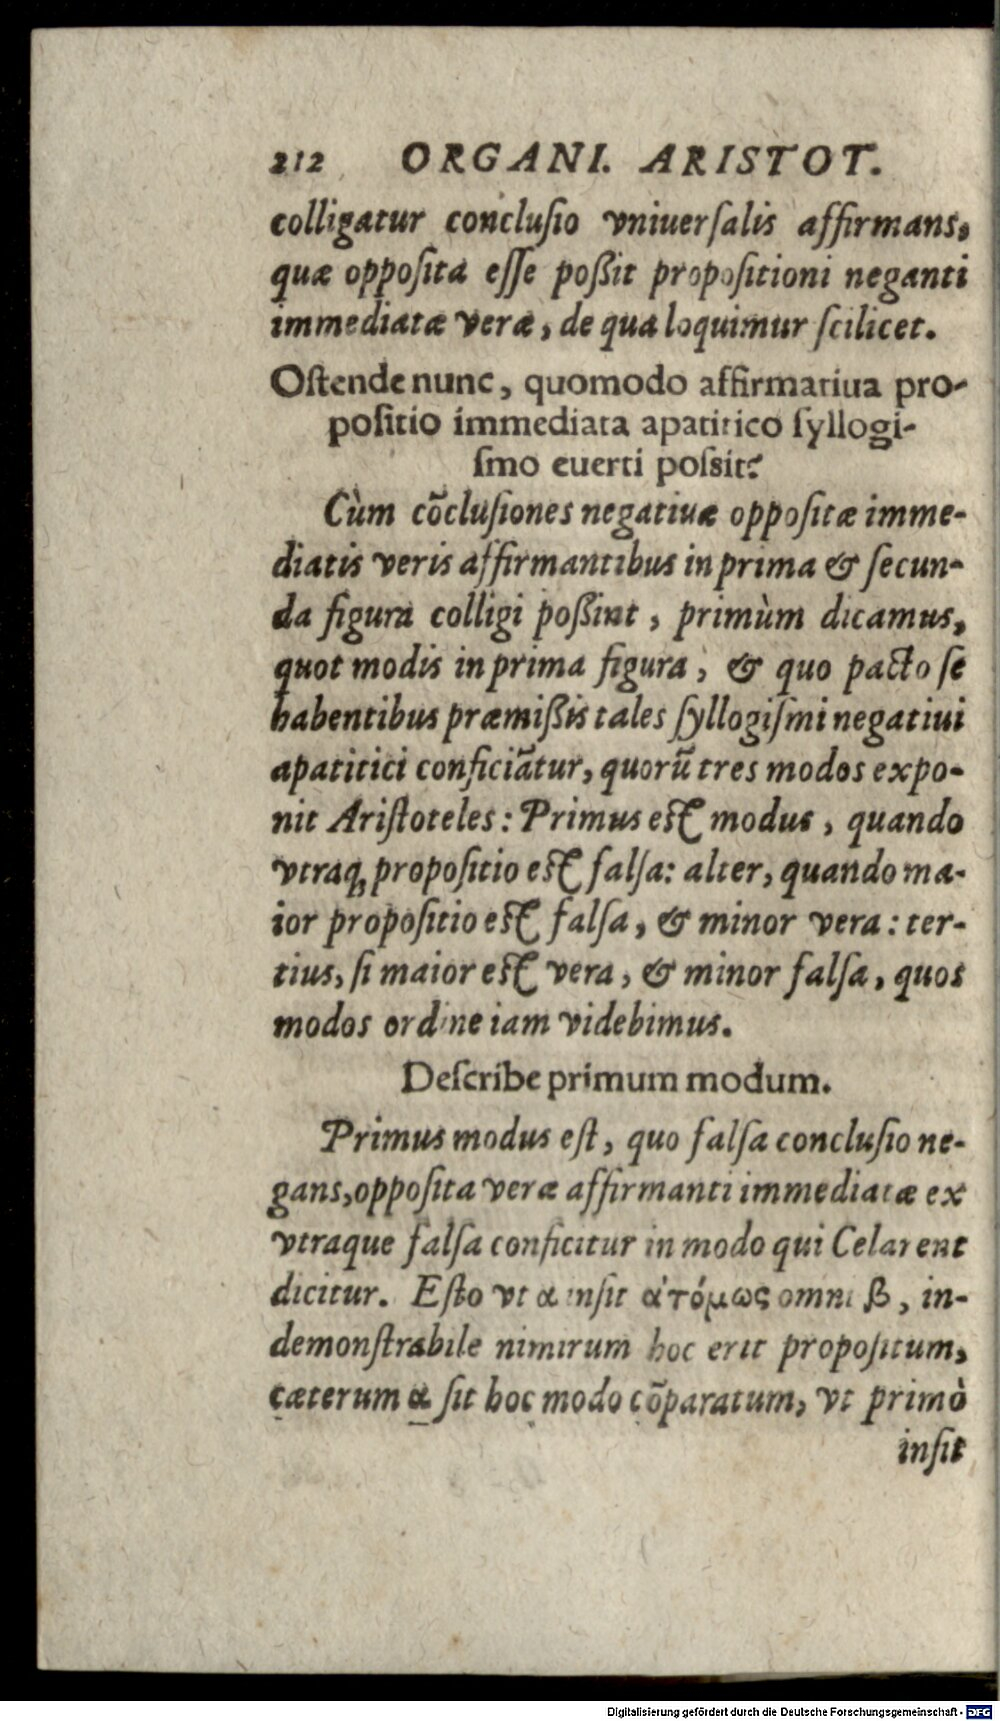 212 ORGANI. ARISTOT.
colligatur conclusio vniuersalis affirmans,
quæ opposita esse poßit propositioni neganti
immediatæ veræ, de qua loquimur scilicet.
Ostende nunc, quomodo affirmatiua pro-
positio immediata apatitico syllogi-
smo euerti possit?
Cùm cōclusiones negatiuæ oppositæ imme-
diatis veris affirmantibus in prima & secun-
da figura colligi poßint, primùm dicamus,
quot modis in prima figura, & quo pacto se
habentibus præmißis tales syllogismi negatiui
apatitici conficiātur, quorū tres modos expo-
nit Aristoteles: Primus est modus, quando
vtraq; propositio est falsa: alter, quando ma-
ior propositio est falsa, & minor vera: ter-
tius, si maior est vera, & minor falsa, quos
modos ordine iam videbimus.
Describe primum modum.
Primus modus est, quo falsa conclusio ne-
gans, opposita veræ affirmanti immediatæ ex
vtraque falsa conficitur in modo qui Celarent
dicitur. Esto vt α insit ἀτόμως omni β, in-
demonstrabile nimirum hoc erit propositum,
cæterum α sit hoc modo cōparatum, vt primò
insit
Digitalisierung gefördert durch die Deutsche Forschungsgemeinschaft - DFG